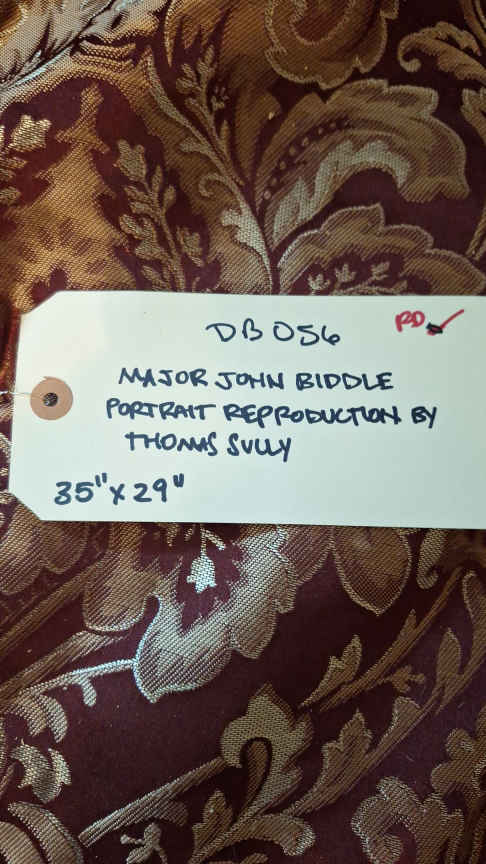 DB 056
RD ✓
MAJOR JOHN BIDDLE
PORTRAIT REPRODUCTION BY
THOMAS SULLY
35" x 29"